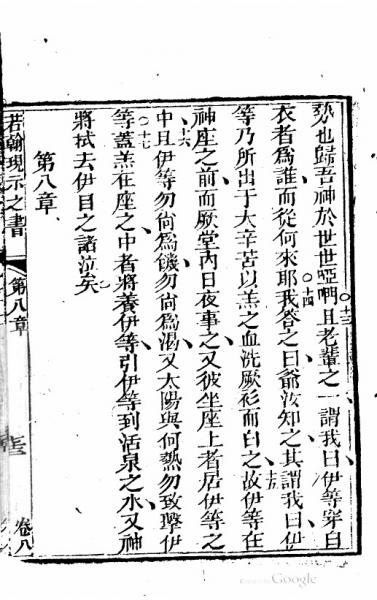 勢也歸吾神於世世啞𠵽○十三且老輩之一謂我曰伊等穿白
衣者爲誰而從何來耶○十四我答之曰爺汝知之其謂我曰伊
等乃所出于大辛苦以羔之血洗厥衫而白之○十五故伊等在
神座之前而厥堂內日夜事之又彼坐座上者居伊等之
○十六中且伊等勿尚爲饑勿尚爲渴又太陽與何熱勿致擊伊
○十七等蓋羔在座之中者將養伊等引伊等到活泉之水又神
將拭去伊目之諸泣矣
第八章
若翰現示之書
第八章
卷八
Google